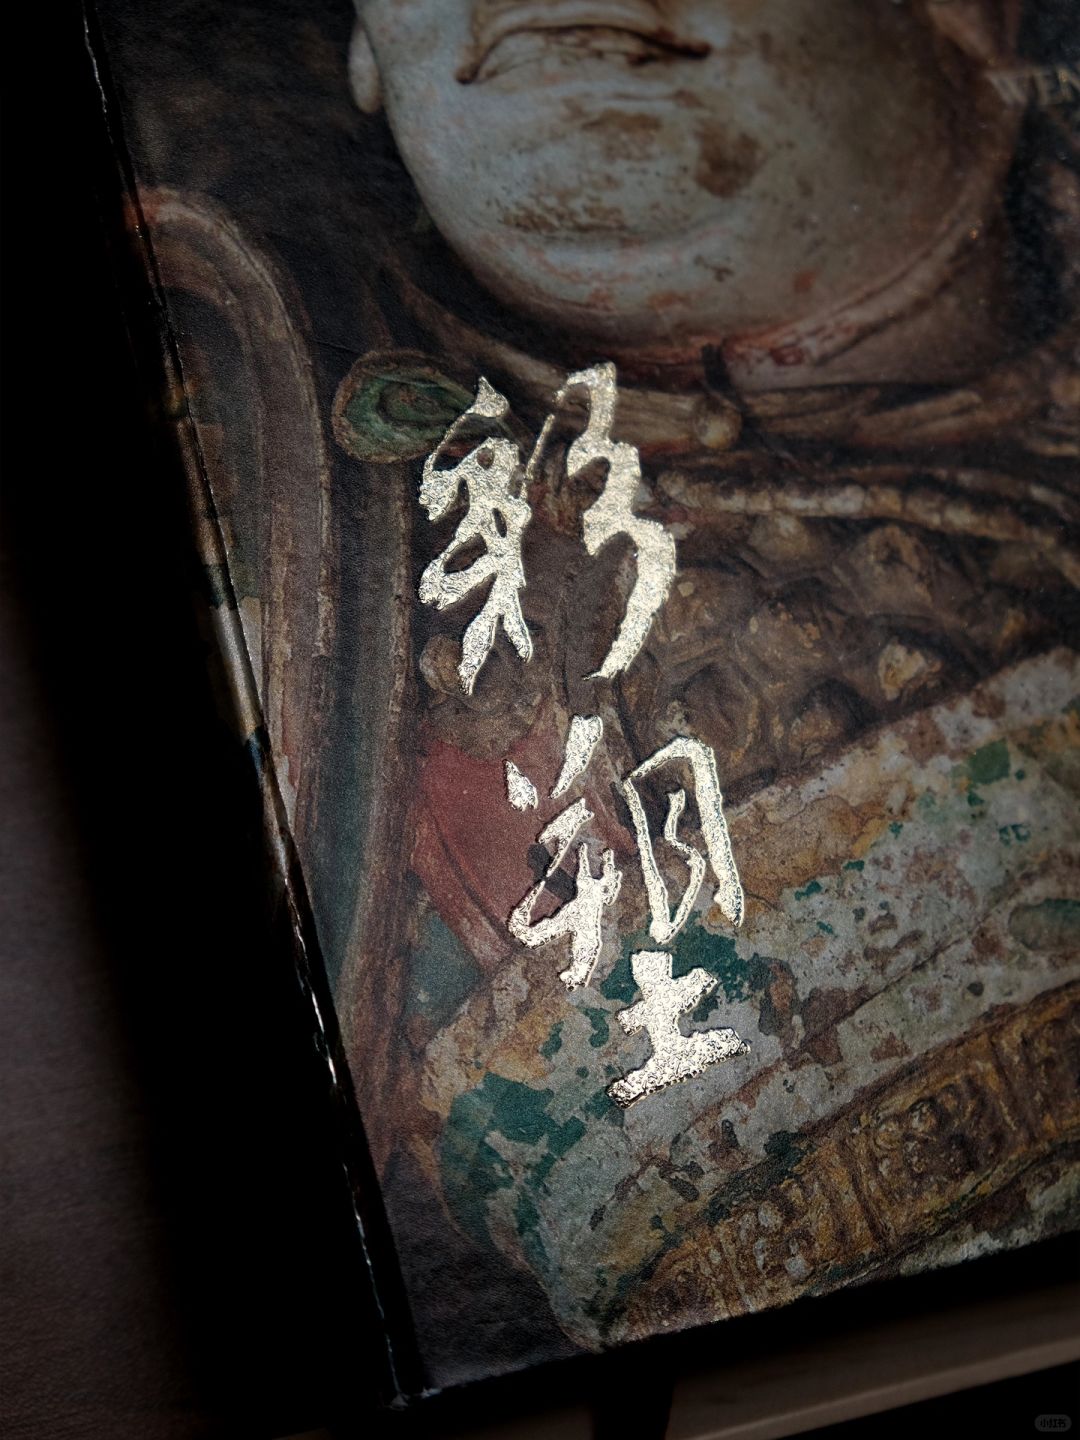 彩塑
WEN
小红书